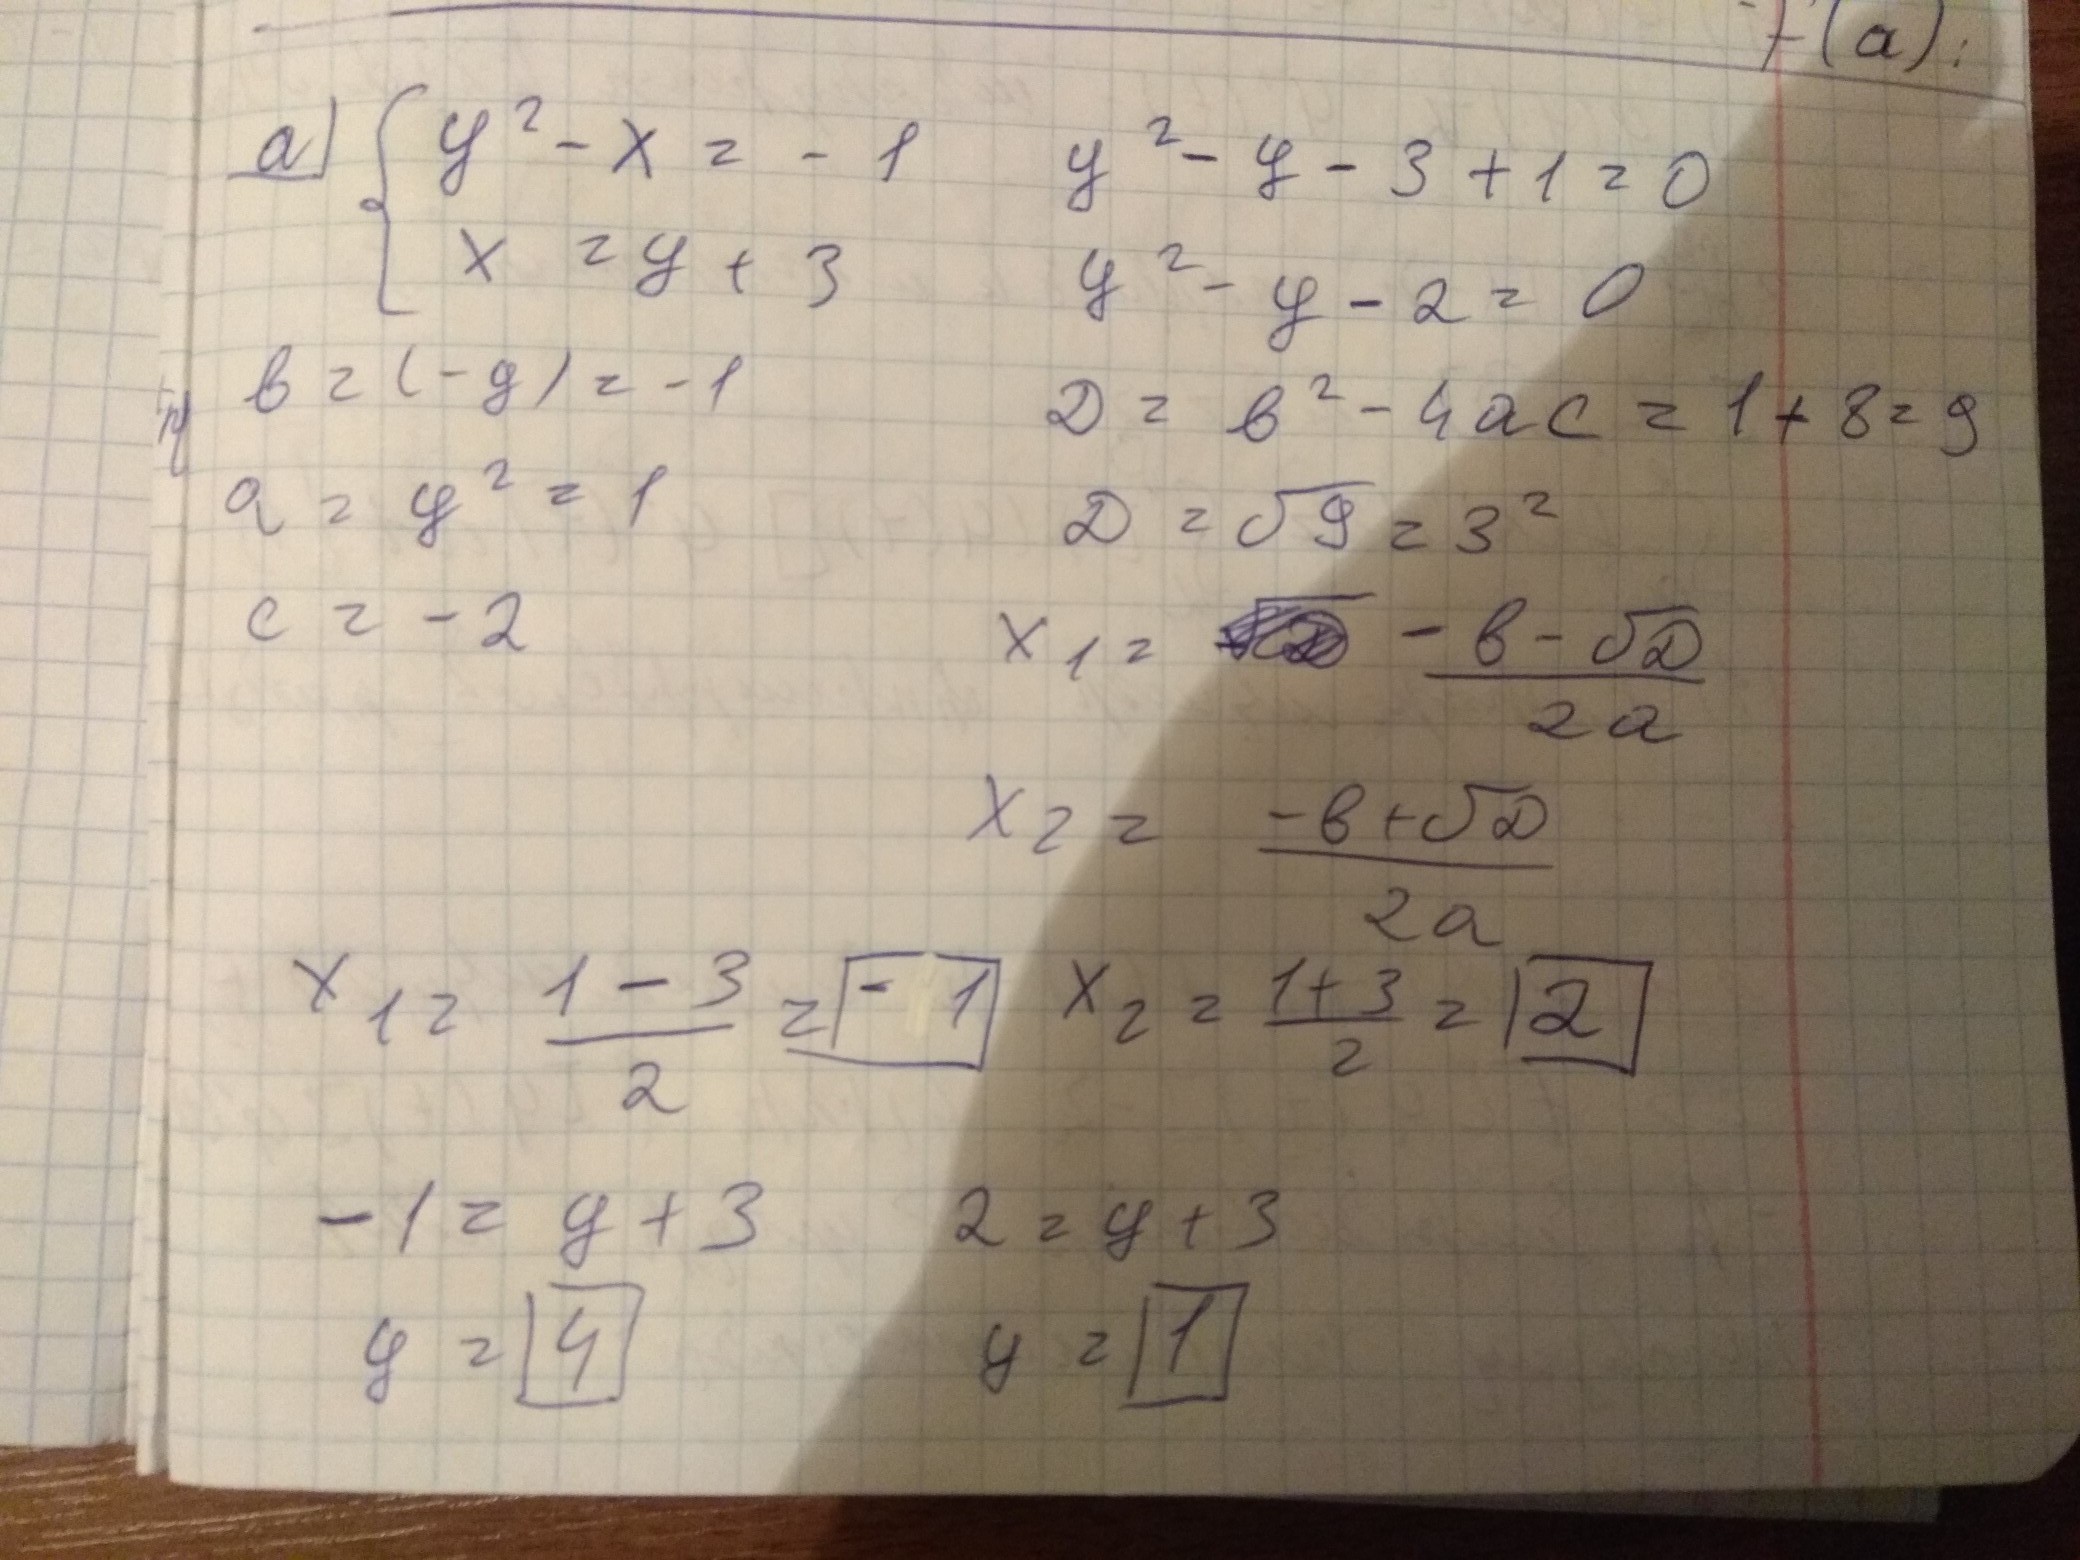 f'(a):
a) { y² - x = - 1
x = y + 3
y² - y - 3 + 1 = 0
y² - y - 2 = 0
в = (-y) = -1
a = y² = 1
c = -2
D = в² - 4ac = 1 + 8 = 9
D = √9 = 3²
x₁ = (-в - √D) / 2a
x₂ = (-в + √D) / 2a
x₁ = (1 - 3) / 2 = -1
x₂ = (1 + 3) / 2 = 2
-1 = y + 3
y = 4
2 = y + 3
y = 1